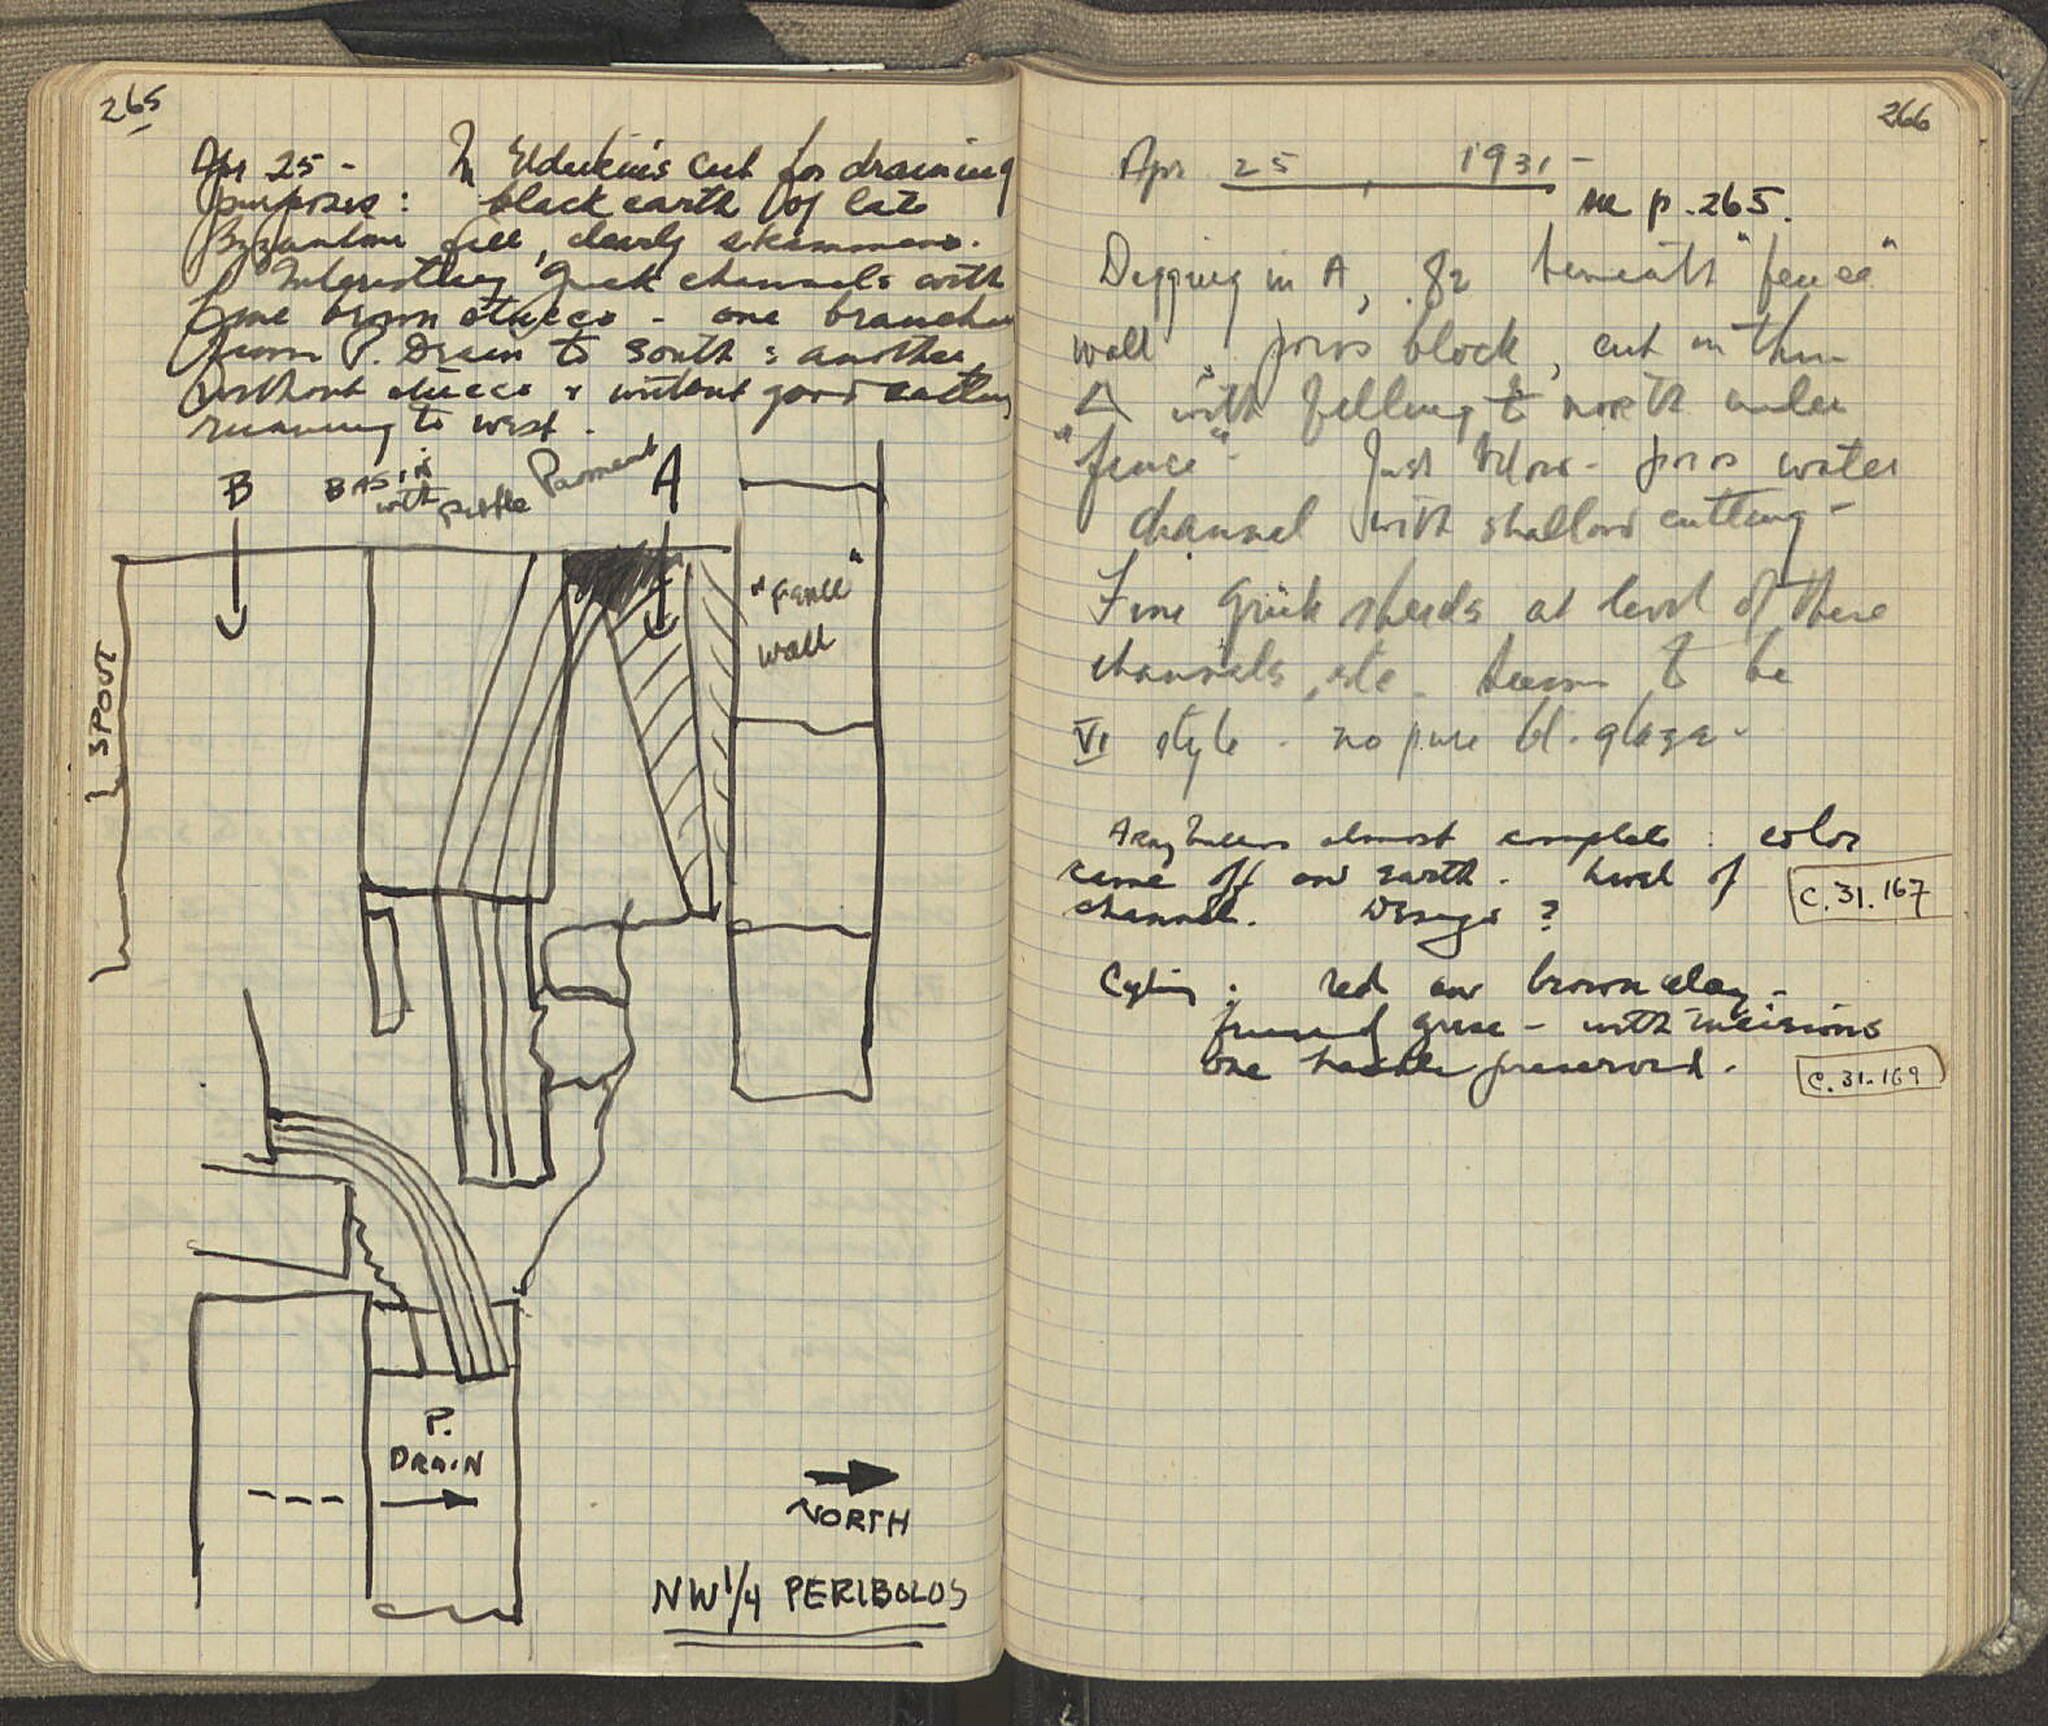 265
Apr 25 - In Elderkin's cut for draining
purposes : black earth of late
Byzantine fill, clearly
Interesting Greek channels with
fine brown stucco - one branches
from P. Drain to South : another
without stucco & without good cutting
running to west .
B
BASIN
with pebble
Pavement
A
SPOUT
"Fence"
wall
P.
DRAIN
NORTH
NW 1/4 PERIBOLOS
266
Apr 25, 1931 -
see p. 265.
Digging in A, beneath "fence"
wall, poros block, cut in then
with filling to north under
"fence" - Just below - poros water
channel with shallow cutting -
Fine Greek sherds at level of these
channels, etc. seem to be
VI style - no pure bl. glaze -
Aryballos almost complete : color
came off on earth - Level of
channel. Design ?
C.31.167
red on brown clay -
with incisions
one handle preserved .
C.31.169